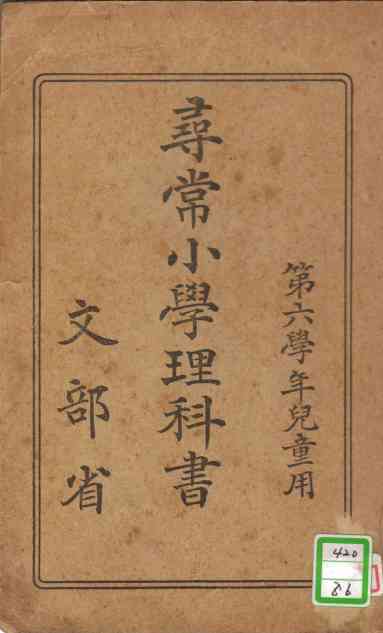 第六學年兒童用
尋常小學理科書
文部省
420
86